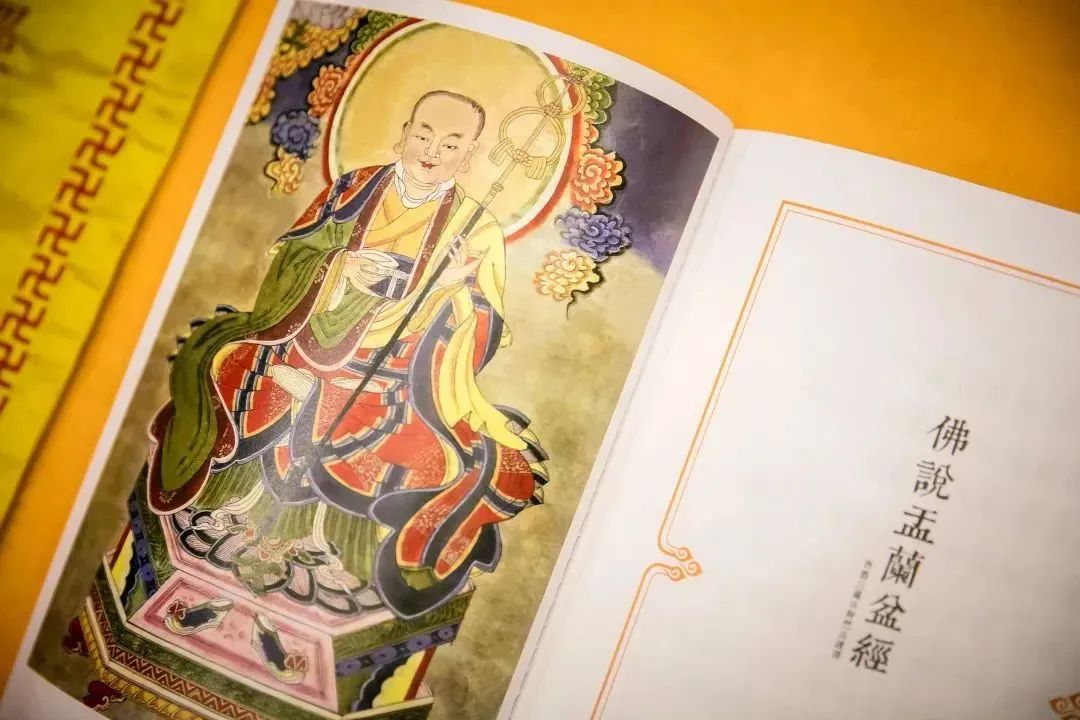 佛說盂蘭盆經
西晉三藏法師竺法護譯